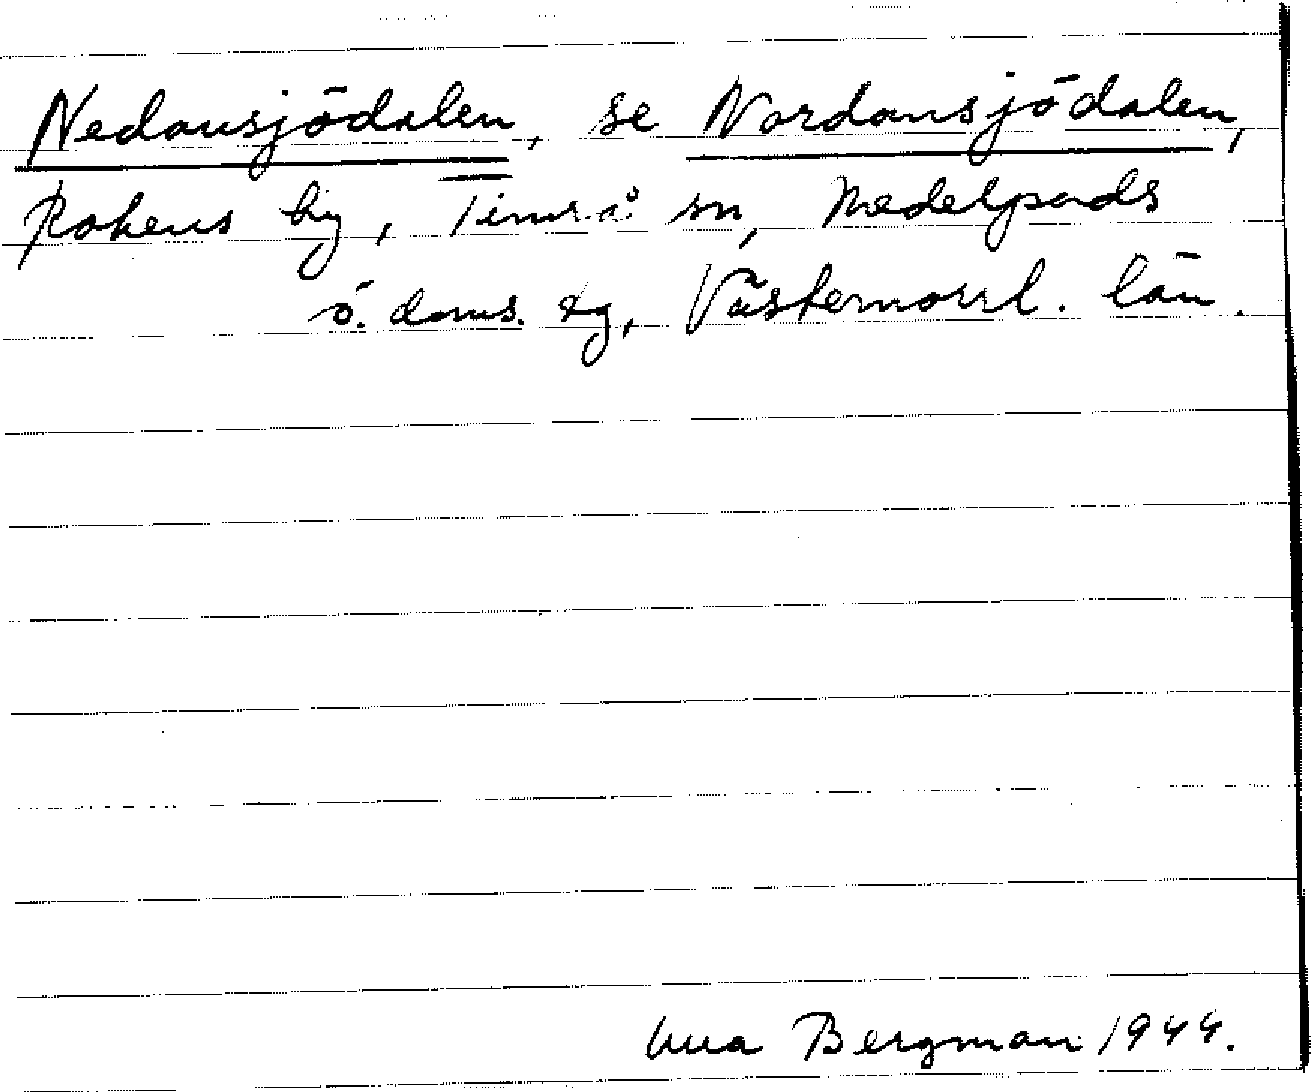 Nedansjödalen, se Nordansjödalen,
Rokens by, Timrå sn, Medelpads
ö. doms. tg, Västernorrl. län.
Bergman 1944.